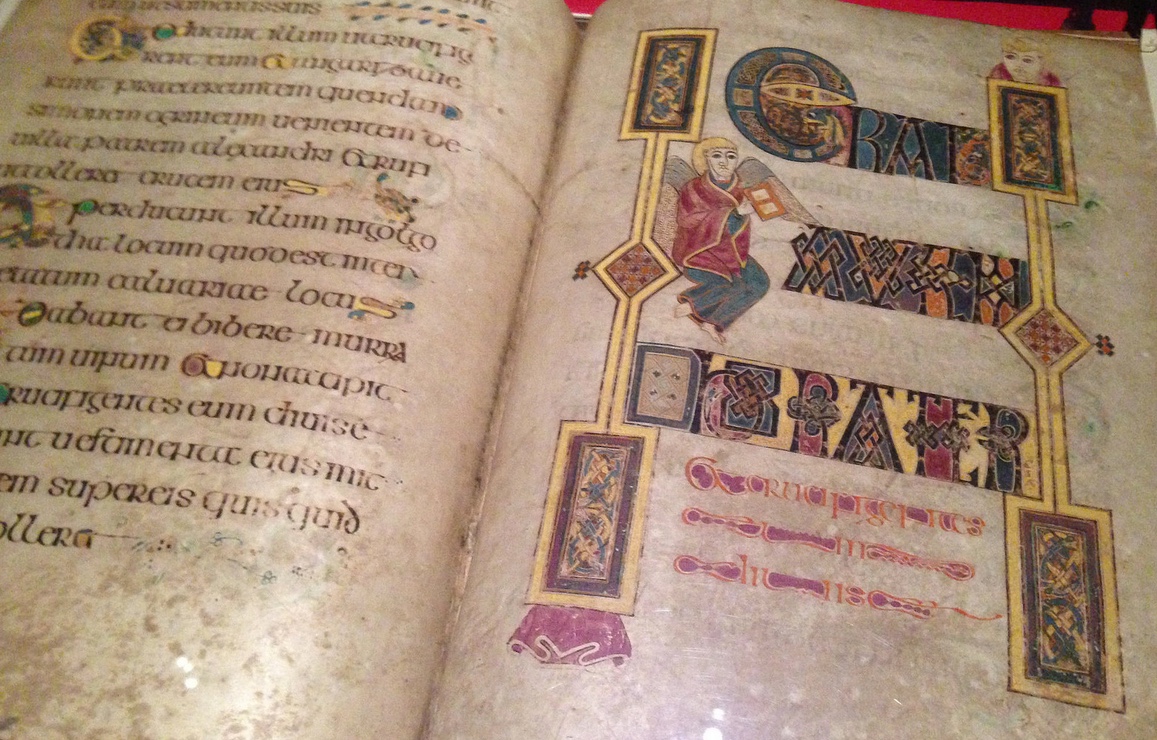 educunt illum ut crucifig
erent eum & angariaue
runt praetereuntem quendam
simonem cirineum uenientem de
uilla patrem alexandri & rufi
tollere crucem eius
perducunt illum in golgo
tha locum quod est inter
caluariae locu
& dabant ei bibere murra
tum uinum & non accipit
crucifigentes eum diuise
runt uestimenta eius mit
super eis quis quid
tollere
ERAT
AUTEM
HORA TERCIA
& crucifigentes
eum
diuise